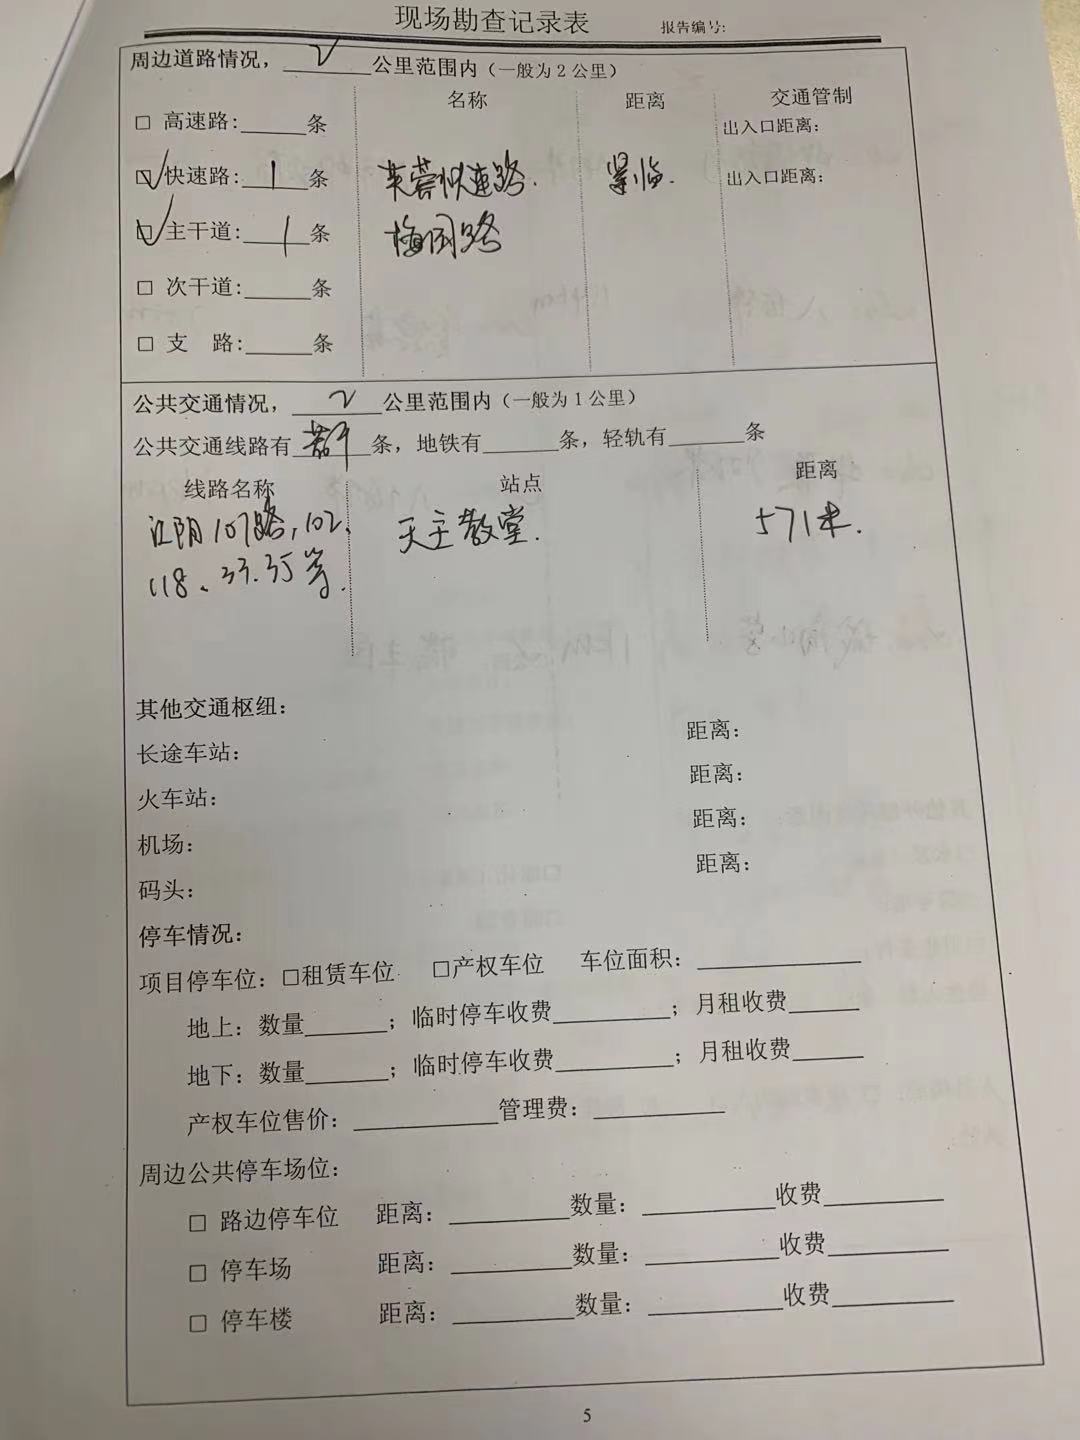 现场勘查记录表 报告编号:
周边道路情况，2公里范围内（一般为2公里）
名称 距离 交通管制
□ 高速路:______条 出入口距离:
☑ 快速路: 1 条 芙蓉快速路. 紧临. 出入口距离:
☑ 主干道: 1 条 梅园路
□ 次干道:______条
□ 支 路:______条
公共交通情况，2公里范围内（一般为1公里）
公共交通线路有若干条，地铁有______条，轻轨有______条
线路名称 站点 距离
江阴107路，102、 天主教堂. 571米.
118、33.35等.
其他交通枢纽:
长途车站: 距离:
火车站: 距离:
机场: 距离:
码头: 距离:
停车情况:
项目停车位: □租赁车位 □产权车位 车位面积:____________
地上: 数量______; 临时停车收费________; 月租收费_____
地下: 数量______; 临时停车收费________; 月租收费_____
产权车位售价:__________管理费:_________
周边公共停车场位:
□ 路边停车位 距离:________数量:_________收费________
□ 停车场 距离:________数量:_________收费________
□ 停车楼 距离:________数量:_________收费________
5